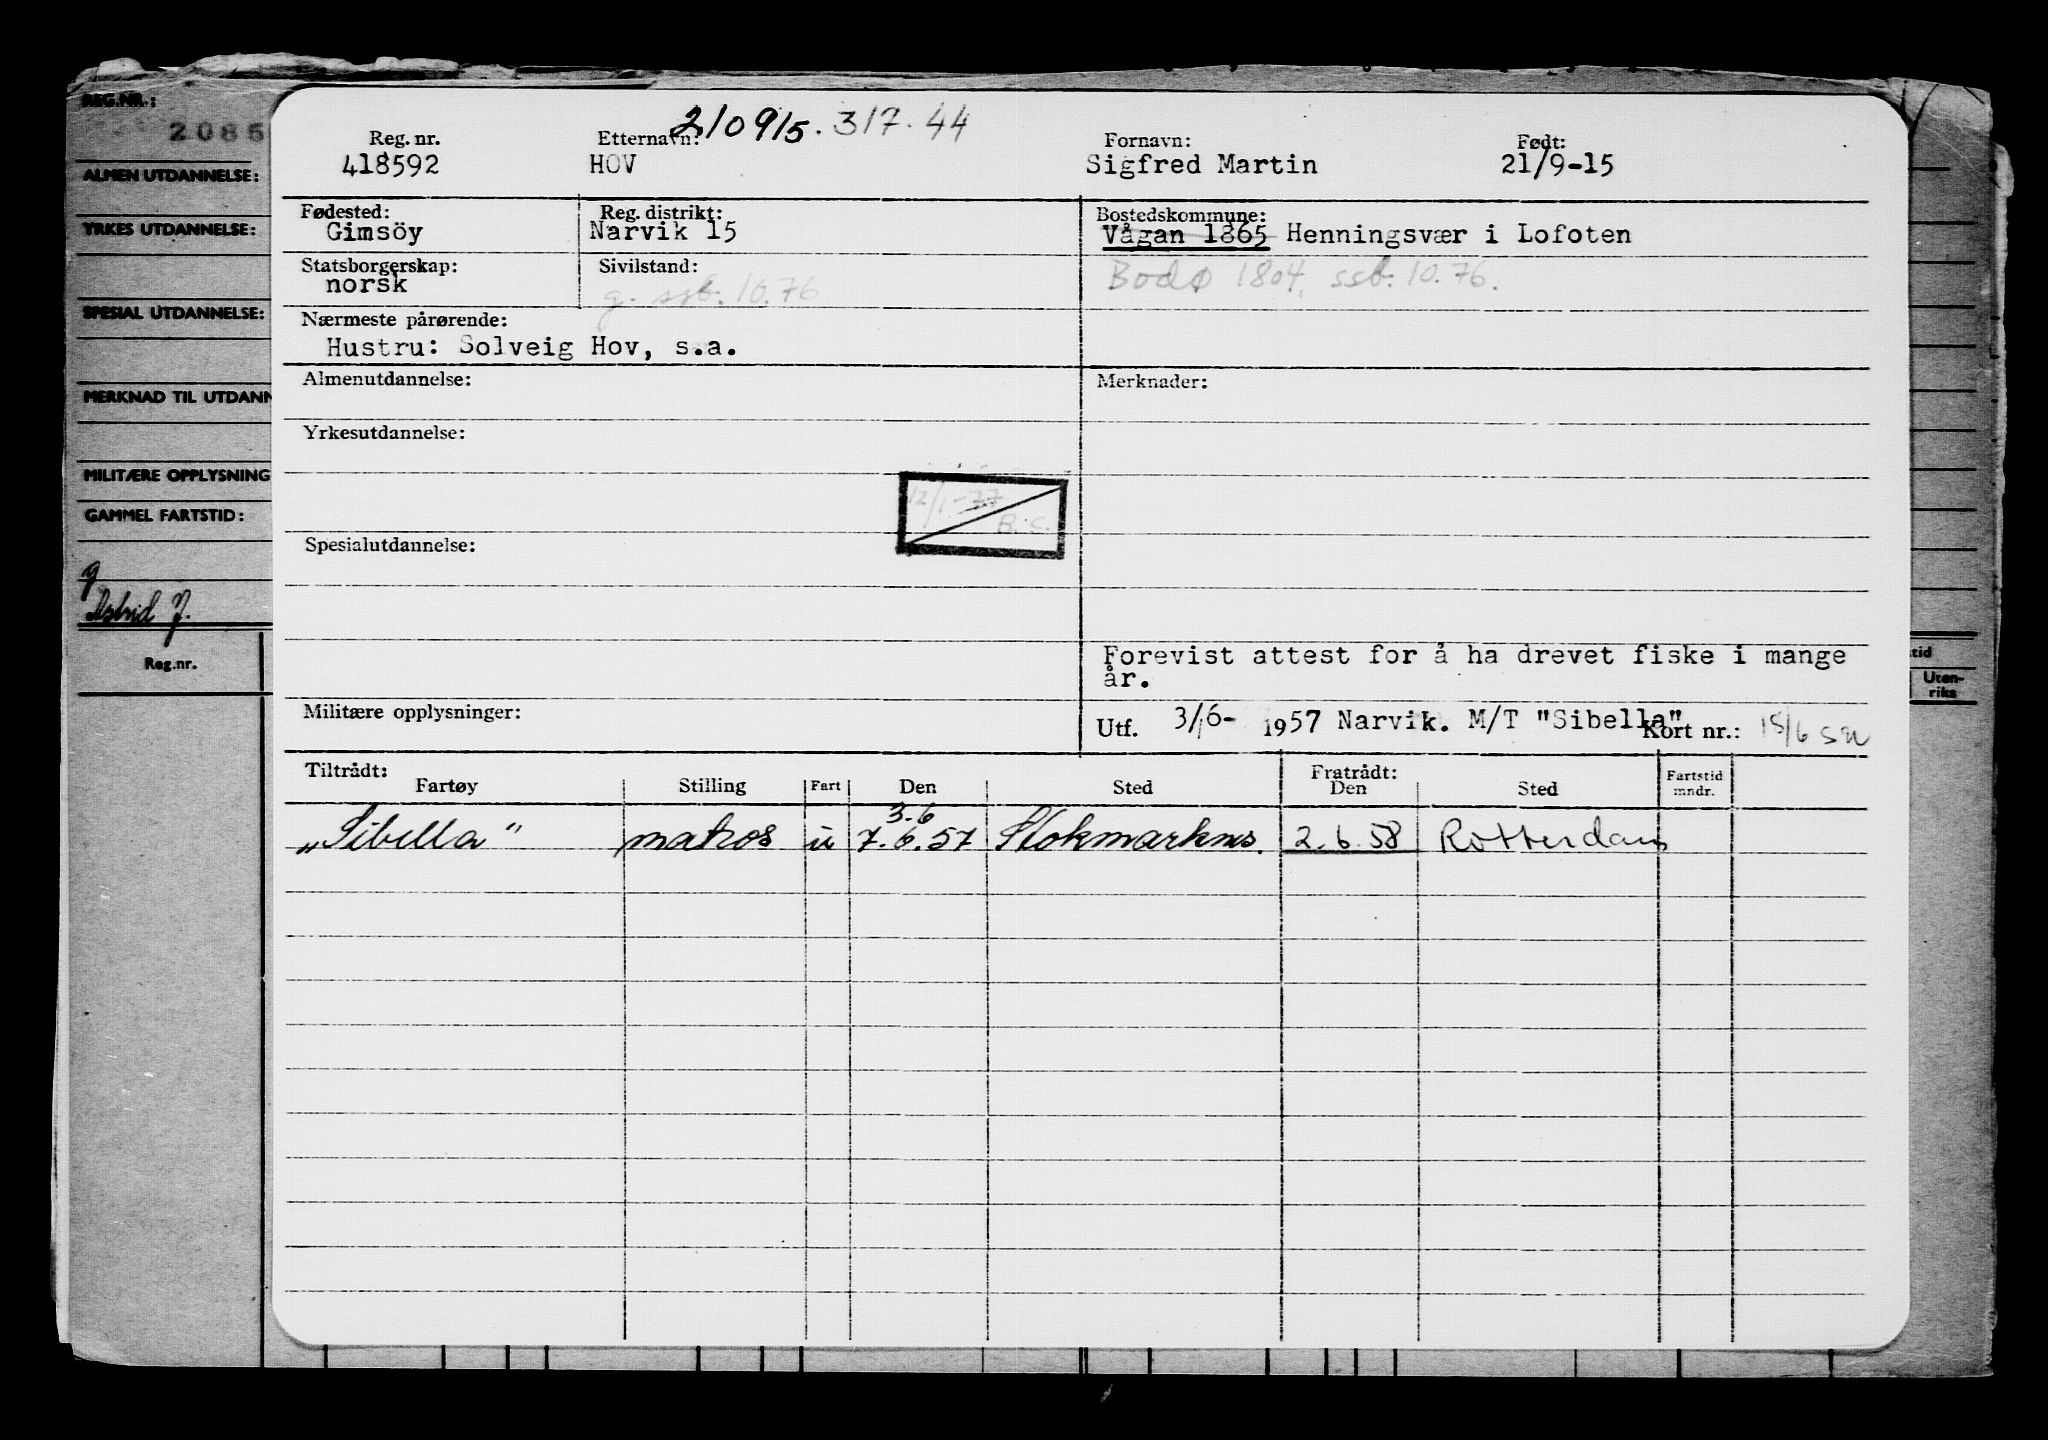 REG.NR.:
2085
ALMEN UTDANNELSE:
YRKES UTDANNELSE:
SPESIAL UTDANNELSE:
MERKNAD TIL UTDANN
MILITÆRE OPPLYSNING
GAMMEL FARTSTID:
g
Astrid J.
Reg.nr.
210915. 317.44
Reg. nr. Etternavn: Fornavn: Født:
418592 HOV Sigfred Martin 21/9-15
Fødested: Reg. distrikt: Bostedskommune:
Gimsöy Narvik 15 Vågan 1865 Henningsvær i Lofoten
Statsborgerskap: Sivilstand:
norsk g. ssb. 10.76 Bodø 1804. ssb. 10.76.
Nærmeste pårørende:
Hustru: Solveig Hov, s.a.
Almenutdannelse: Merknader:
Yrkesutdannelse:
12/1-77
B.C.
Spesialutdannelse:
Forevist attest for å ha drevet fiske i mange
år.
Militære opplysninger:
Utf. 3/6- 1957 Narvik. M/T "Sibella" Kort nr.: 18/6 sn
Tiltrådt: Fratrådt:
Fartøy Stilling Fart Den Sted Den Sted Fartstid mndr.
3.6
„Sibella" matros u 7.6.57 Stokmarknes. 2.6.58 Rotterdam
tid
Uten-
riks